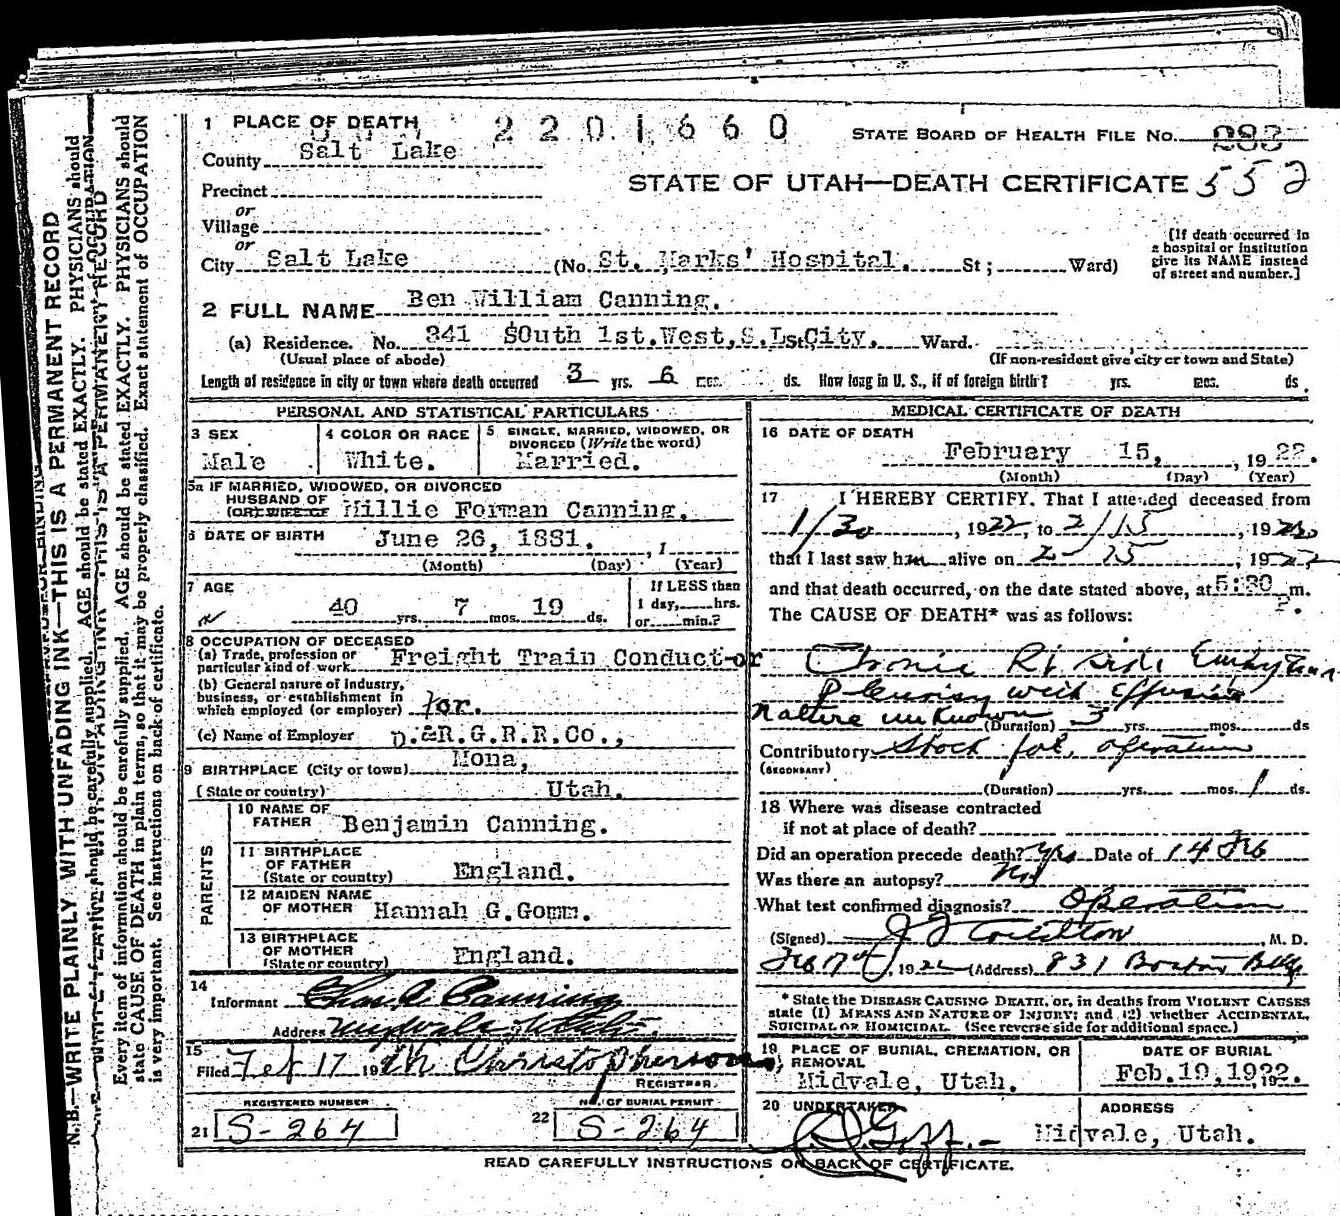 1 PLACE OF DEATH 2201660 STATE BOARD OF HEALTH FILE No. 283
County Salt Lake
STATE OF UTAH—DEATH CERTIFICATE 552
Precinct
or
Village
or
City Salt Lake (No. St. Marks' Hospital. St; Ward)
[If death occurred in
a hospital or institution
give its NAME instead
of street and number.]
2 FULL NAME Ben William Canning.
(a) Residence. No. 841 SOuth 1st.West,S.L.City. St. Ward.
(Usual place of abode) (If non-resident give city or town and State)
Length of residence in city or town where death occurred 3 yrs. 6 mos. ds. How long in U. S., if of foreign birth? yrs. mos. ds.
PERSONAL AND STATISTICAL PARTICULARS
3 SEX
Male
4 COLOR OR RACE
White.
5 SINGLE, MARRIED, WIDOWED, OR
DIVORCED (Write the word)
Married.
5a IF MARRIED, WIDOWED, OR DIVORCED
HUSBAND OF
(OR) WIFE OF Millie Forman Canning.
6 DATE OF BIRTH June 26, 1881. , 1
(Month) (Day) (Year)
7 AGE
40 yrs. 7 mos. 19 ds.
If LESS than
1 day, hrs.
or min.?
8 OCCUPATION OF DECEASED
(a) Trade, profession or
particular kind of work Freight Train Conduct-or
(b) General nature of industry,
business, or establishment in
which employed (or employer) for.
(c) Name of Employer D.&R.G.R.R.Co.,
9 BIRTHPLACE (City or town) Mona,
(State or country) Utah.
PARENTS
10 NAME OF
FATHER Benjamin Canning.
11 BIRTHPLACE
OF FATHER
(State or country) England.
12 MAIDEN NAME
OF MOTHER Hannah G.Gomm.
13 BIRTHPLACE
OF MOTHER
(State or country) England.
14
Informant Chas. Canning
Address Midvale Utah.
15
Filed Feb 17 19 Christopherson,
REGISTRAR.
REGISTERED NUMBER
21 S-264
No. OF BURIAL PERMIT
22 S-264
MEDICAL CERTIFICATE OF DEATH
16 DATE OF DEATH
February 15, , 1922.
(Month) (Day) (Year)
17 I HEREBY CERTIFY, That I attended deceased from
1/30, 1922, to 2/15, 1922
that I last saw him alive on 2-15, 1922
and that death occurred, on the date stated above, at 5:30 P. m.
The CAUSE OF DEATH* was as follows:
Chronic Rt side Empyema
Pleurisy with effusion
nature unknown (Duration) 3 yrs. mos. ds
Contributory Shock fol. operation
(SECONDARY)
(Duration) yrs. mos. 1 ds.
18 Where was disease contracted
if not at place of death?
Did an operation precede death? Yes Date of 14 Feb
Was there an autopsy? No
What test confirmed diagnosis? Operation
(Signed) , M. D.
Feb 17th, 1922 (Address) 831 Boston Bldg
* State the DISEASE CAUSING DEATH, or, in deaths from VIOLENT CAUSES
state (1) MEANS AND NATURE OF INJURY; and (2) whether ACCIDENTAL,
SUICIDAL OR HOMICIDAL. (See reverse side for additional space.)
19 PLACE OF BURIAL, CREMATION, OR
REMOVAL
Midvale, Utah.
DATE OF BURIAL
Feb.19,1922. , 192
20 UNDERTAKER
ADDRESS
Midvale, Utah.
READ CAREFULLY INSTRUCTIONS ON BACK OF CERTIFICATE.
N. B.—WRITE PLAINLY, WITH UNFADING INK—THIS IS A PERMANENT RECORD
Every item of information should be carefully supplied. AGE should be stated EXACTLY. PHYSICIANS should
state CAUSE OF DEATH in plain terms, so that it may be properly classified. Exact statement of OCCUPATION
is very important. See instructions on back of certificate.